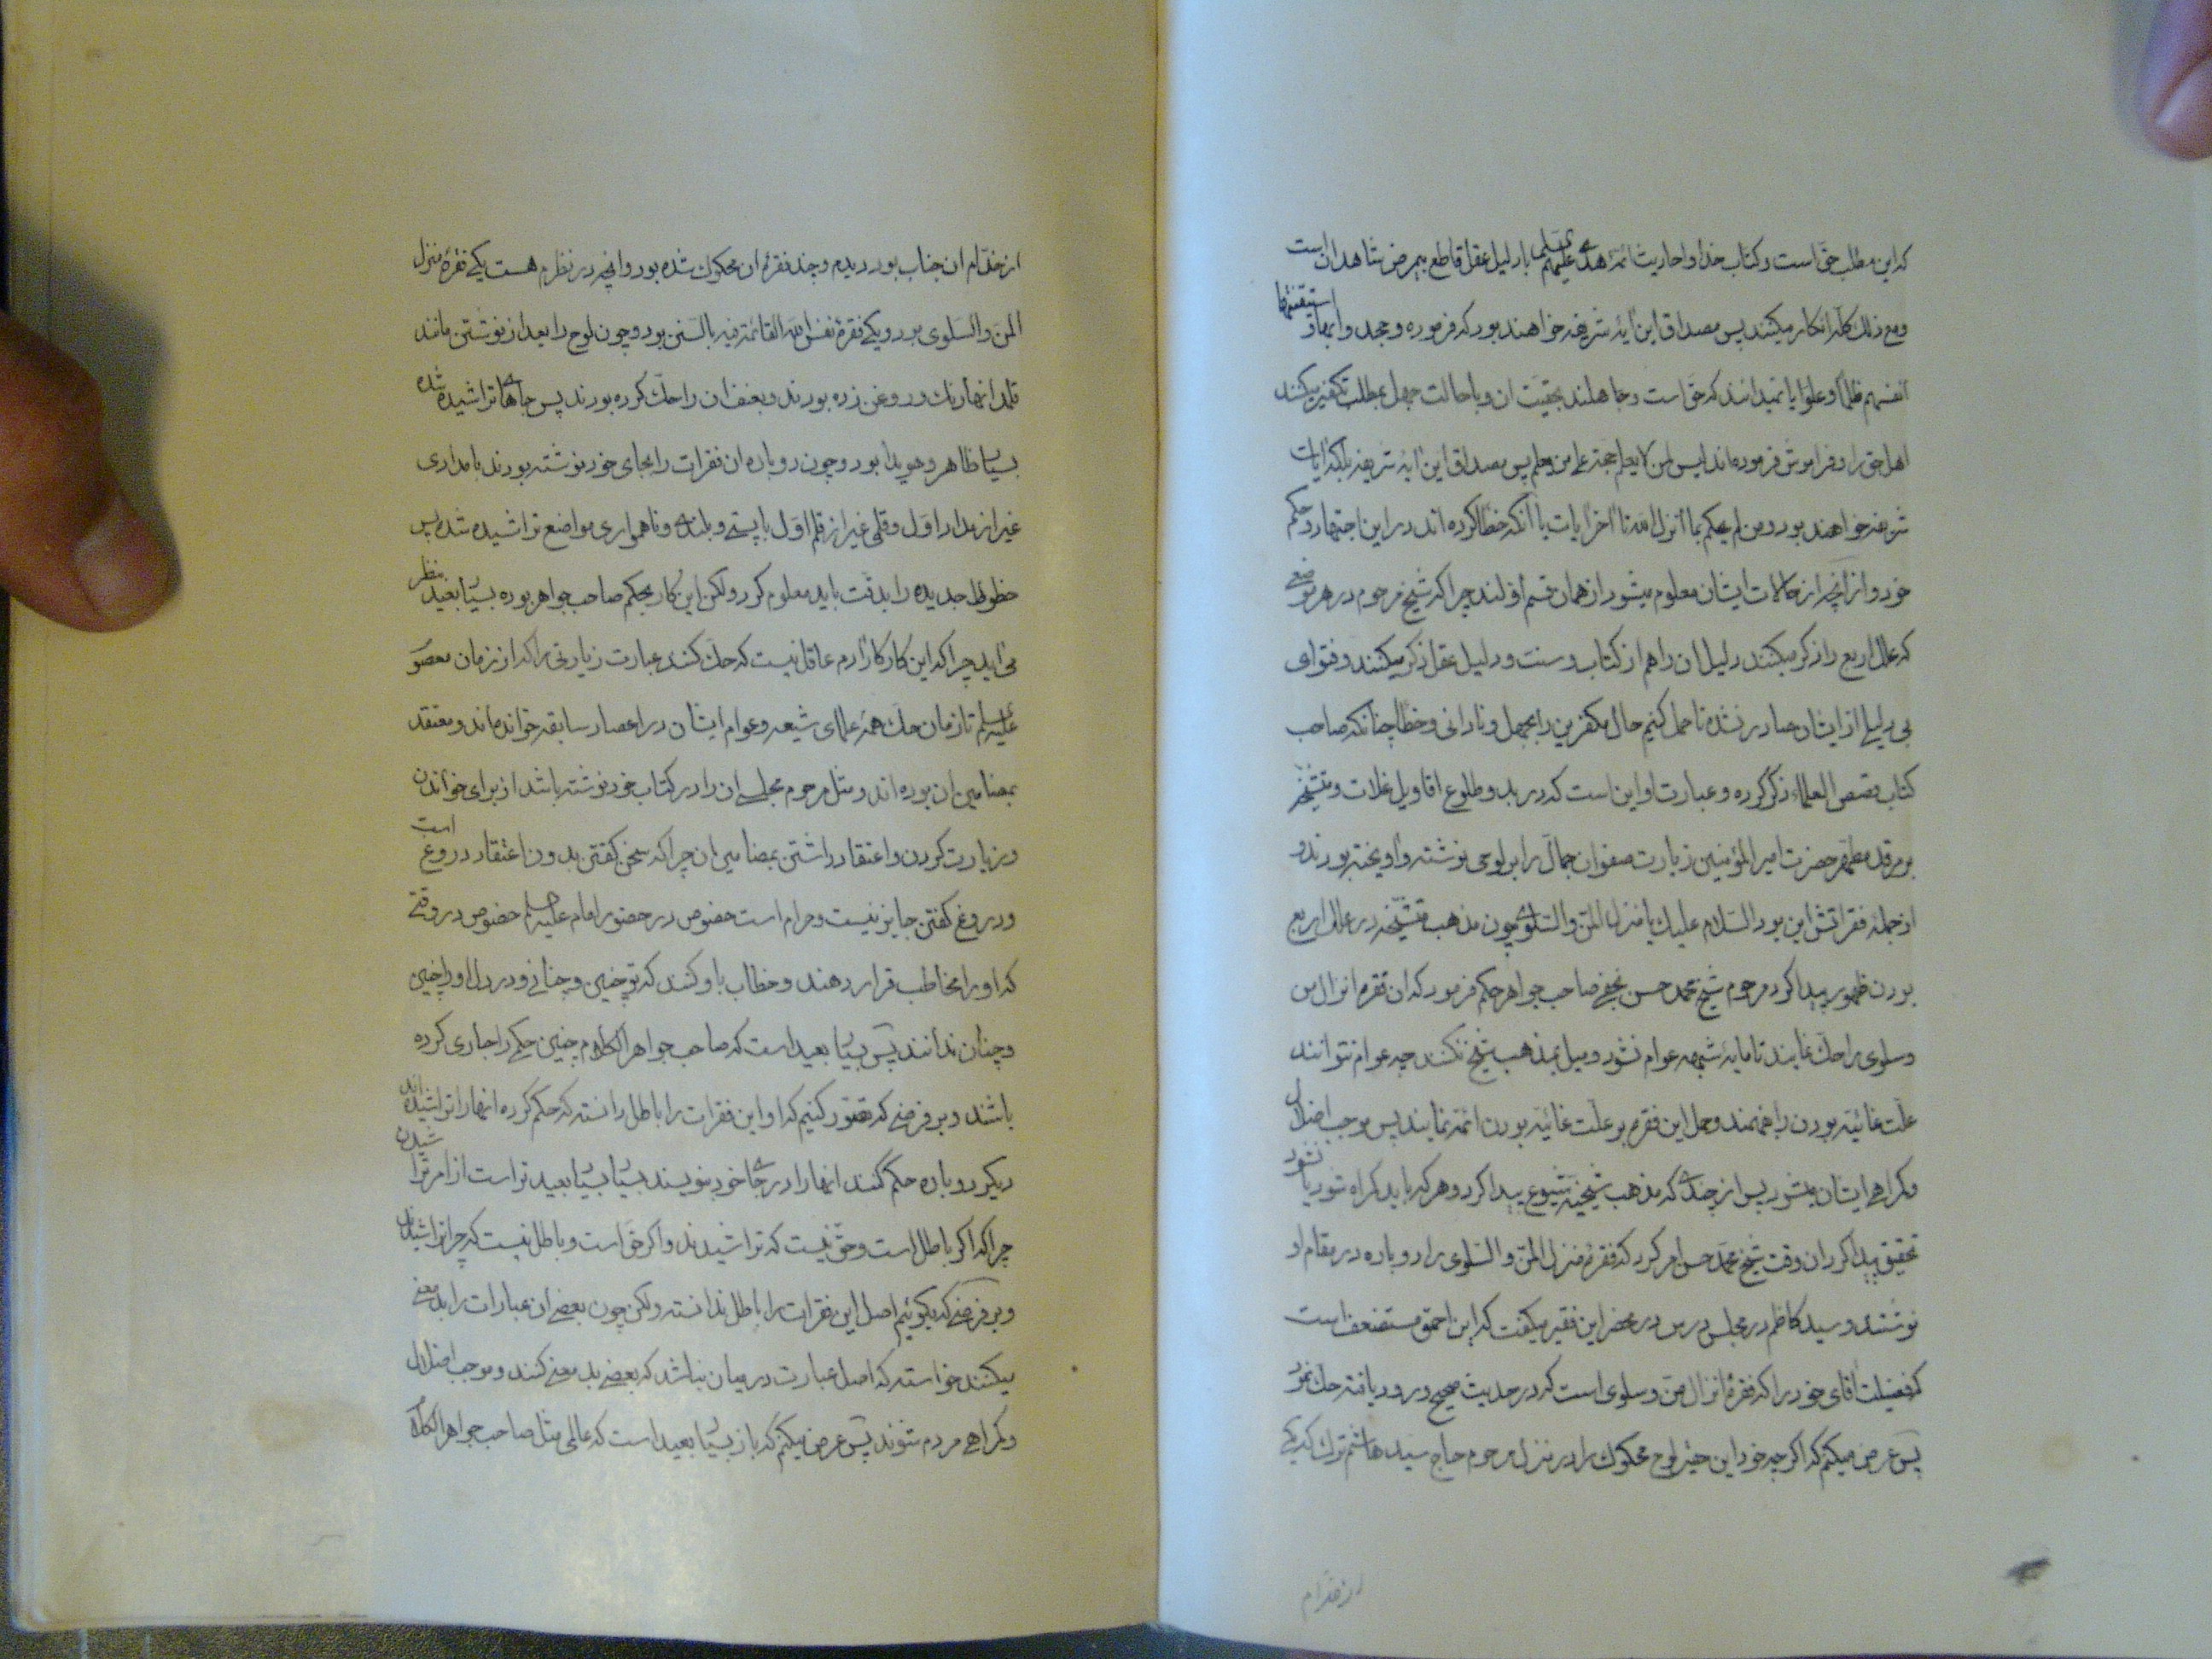 که این مطلب حق است و کتاب خدا و احادیث ائمه هدی علیهم السلام با دلیل عقل قاطع بیمرض شاهد ان است
و مع ذلك کله انکار میکنند پس مصداق این ایه شریفه خواهند بود که فرموده و جحدوا بها و استیقنتها
انفسهم ظلما و علوا یا نمیدانند که حق است و جاهلند بحقیت ان و با حالت جهل بمطلب تکفیر میکنند
اهل حق را و فراموش فرموده‌اند لیس لمن لا یعلم حجة علی من یعلم پس مصداق این ایه شریفه بلکه ایات
شریفه خواهند بود و من لم یحکم بما انزل الله تا اخر ایات یا انکه خطا کرده اند در این اجتهاد و حکم
خود و از انچه از حالات ایشان معلوم میشود از همان قسم اولند چرا که شیخ مرحوم در هر موضعی
که علل اربع را ذکر میکنند دلیل ان را هم از کتاب و سنت و دلیل عقل ذکر میکنند و فتوای
بی دلیلی از ایشان صادر نشده تا حمل کنیم حال مکفرین را بجهل و نادانی و خطا چنانکه صاحب
کتاب قصص العلماء ذکر کرده و عبارت او این است که در بدو طلوع اقاویل غلات و متشیخه
بر مرقد مطهر حضرت امیر المؤمنین زیارت صفوان جمال را بر لوحی نوشته و اویخته بودند و
از جمله فقراتش این بود السلام علیك یا منزل المن و السلوی چون مذهب متشیخه در علل اربع
بودن ظهور پیدا کرد مرحوم شیخ محمد حسن نجفی صاحب جواهر حکم فرمود که ان فقره انزال من
و سلوی را حك نمایند تا مایه شبهه عوام نشود و میل بمذهب شیخی نکنند چه عوام نتوانند
علت غائیه بودن را فهمند و حمل این فقره بر علت غائیه بودن ائمه نمایند پس موجب اضلال
و کمراهی ایشان میشود پس از چندی که مذهب شیخیه شیوع پیدا کرد و هر که باید کمراه شود یا نشود
تحقیق پیدا کرد ان وقت شیخ محمد حسن امر کرد که فقره منزل المن و السلوی را دوباره در مقام او
نوشتند و سید کاظم در مجلس درس در محضر این فقیر میکفت که این احمق مستضعف است
که فضیلت اقای خود را که فقره انزال من و سلوی است که در حدیث صحیح ورود یافته حك نمود
پس عرض میکنم که اکر چه خود این حقیر لوح محکوك را در منزل مرحوم حاج سید هاشم ترك که یکی
از خدام
از خدام ان جناب بود دیدم و چند فقره ان محکوك شده بود و انچه در نظرم هست یکی فقره منزل
المن و السلوی بود و یکی فقره نفس الله القائمة فیه بالسنن بود و چون لوح را بعد از نوشتن مانند
قلمدانها رنك و روغن زده بودند و بعنف ان را حك کرده بودند پس جاهای تراشیده شده
بسیار ظاهر و هویدا بود و چون دوباره ان فقرات را بجای خود نوشته بودند با مدادی
غیر از مداد اول و قلمی غیر از قلم اول با پستی و بلندی و ناهمواری مواضع تراشیده شده پس
خطوط جدیده را بدقت باید معلوم کرد ولکن این کار بحکم صاحب جواهر بوده بسیار بعید بنظر
می‌اید چرا که این کار کار ادم عاقل نیست که حك کند عبارت زیارتی را که از زمان معصوم
علیه السلم تا زمان حك همه علمای شیعه و عوام ایشان در اعصار سابقه خوانده‌اند و معتقد
بمضامین ان بوده اند و مثل مرحوم مجلسی ان را در کتاب خود نوشته باشد از برای خواندن
و زیارت کردن و اعتقاد داشتن بمضامین ان چرا که سخن کفتن بدون اعتقاد دروغ است
و دروغ کفتن جایز نیست و حرام است خصوص در حضور امام علیه السلم خصوص در وقتی
که او را مخاطب قرار دهند و خطاب باو کنند که تو چنین و چنانی و در دل او را چنین
و چنان ندانند پس بسیار بعید است که صاحب جواهر الکلام چنین حکمی را جاری کرده
باشند و بر فرضی که تصور کنیم که او این فقرات را باطل دانسته که حکم کرده انها را تراشیده‌اند
دیکر دوباره حکم کند انها را در جای خود بنویسند بسیار بسیار بعید تر است از امر تراشیدن
چرا که اکر باطل است و حق نیست که تراشیدند و اکر حق است و باطل نیست که چرا تراشیدند
و بر فرضی که بکوئیم اصل این فقرات را باطل ندانسته ولکن چون بعضی ان عبارات را بد معنی
میکنند خواسته که اصل عبارت در میان نباشد که بعضی بد معنی کنند و موجب اضلال
و کمراهی مردم شوند پس عرض میکنم که باز بسیار بعید است که عالمی مثل صاحب جواهر الکلام